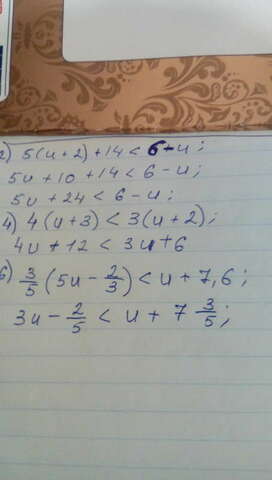 2) 5(u+2)+14<6-u;
5u+10+14<6-u;
5u+24<6-u;
4) 4(u+3)<3(u+2);
4u+12<3u+6
6) 3/5(5u-2/3)<u+7,6;
3u-2/5<u+7 3/5;